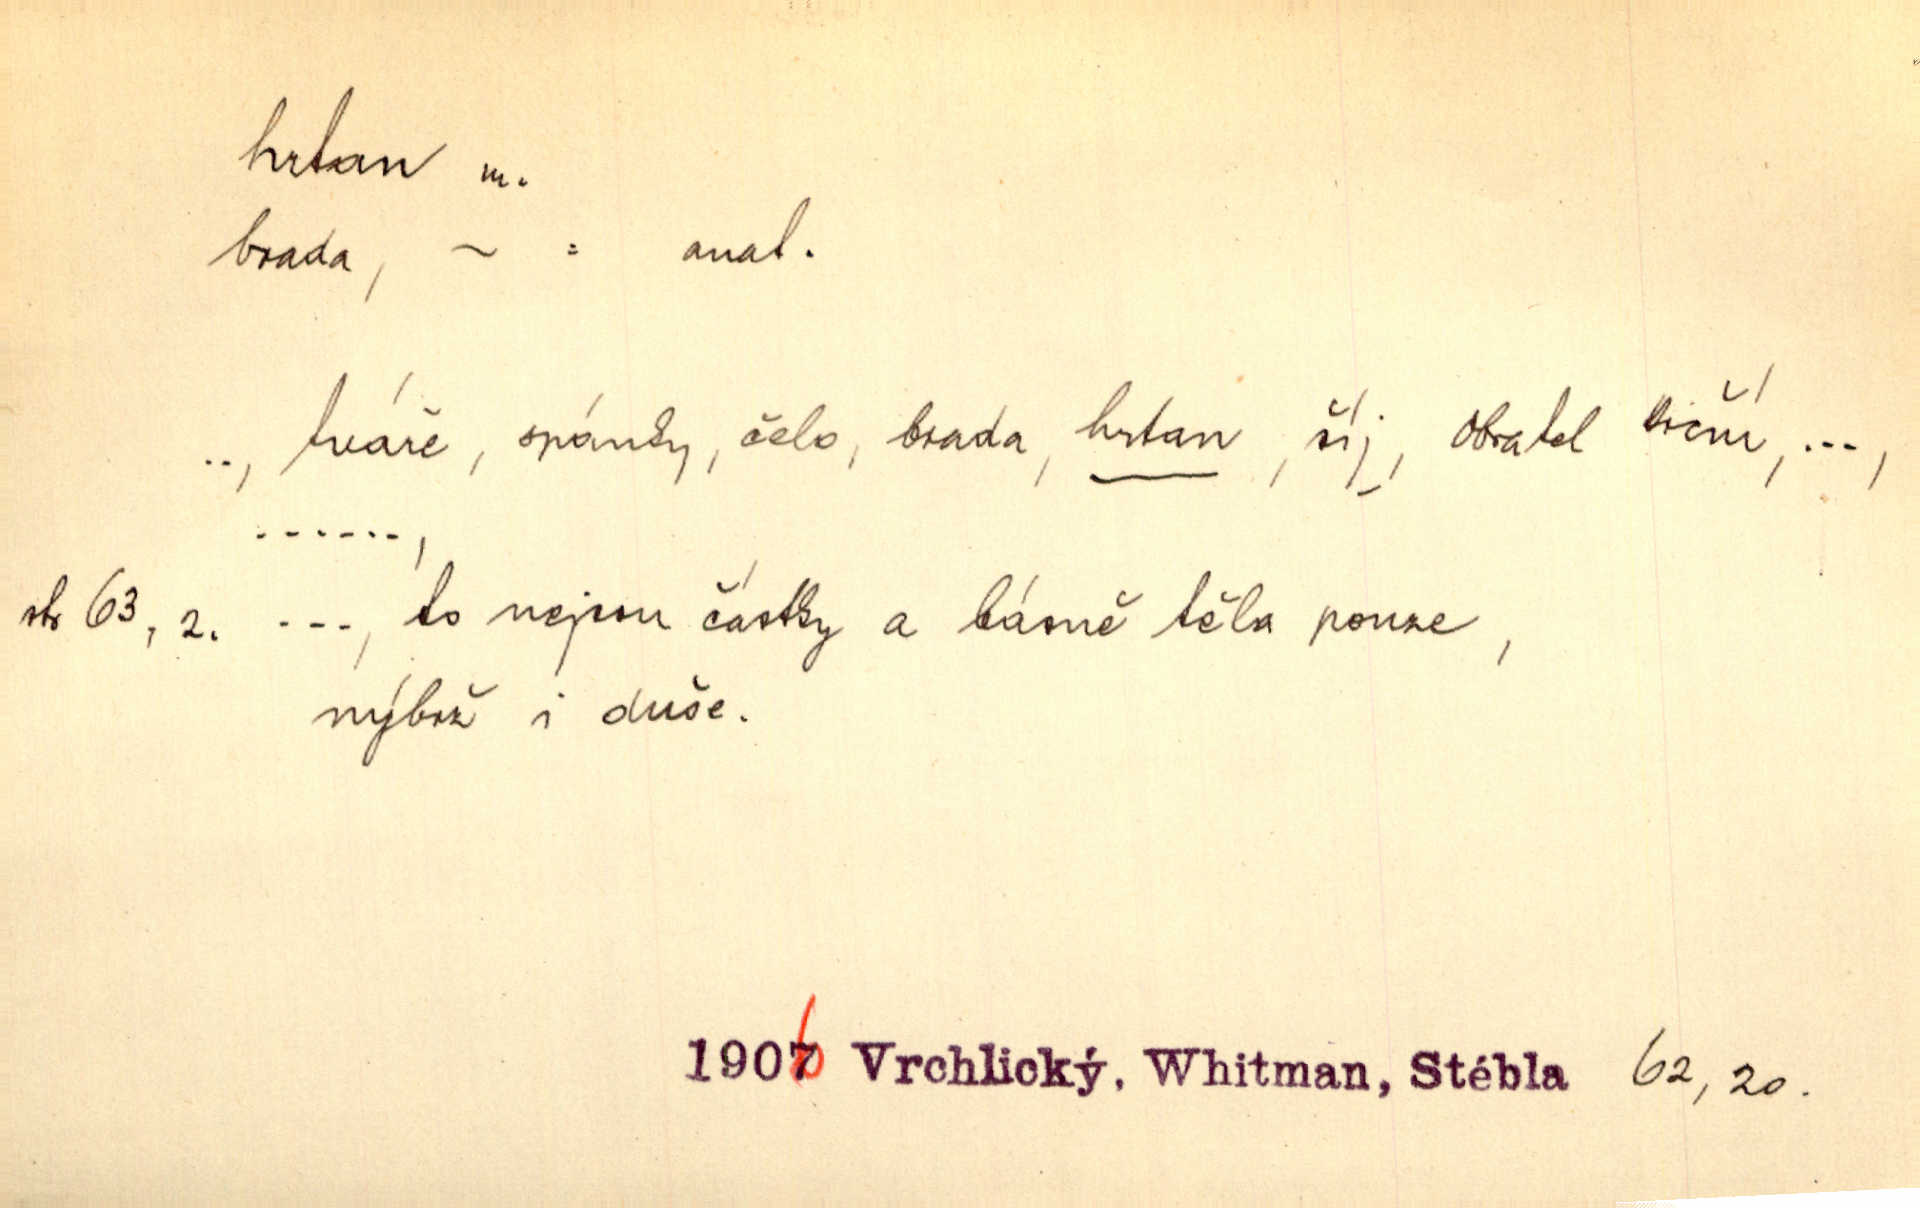 hrtan m.
brada, ~ : anat.
.., tváře, spánky, čelo, brada, hrtan, šíj, obratel šíční, ---,
------,
str 63, 2. ---, to nejsou částky a básně těla pouze,
nýbrž i duše.
1906 Vrchlický, Whitman, Stébla 62, 20.